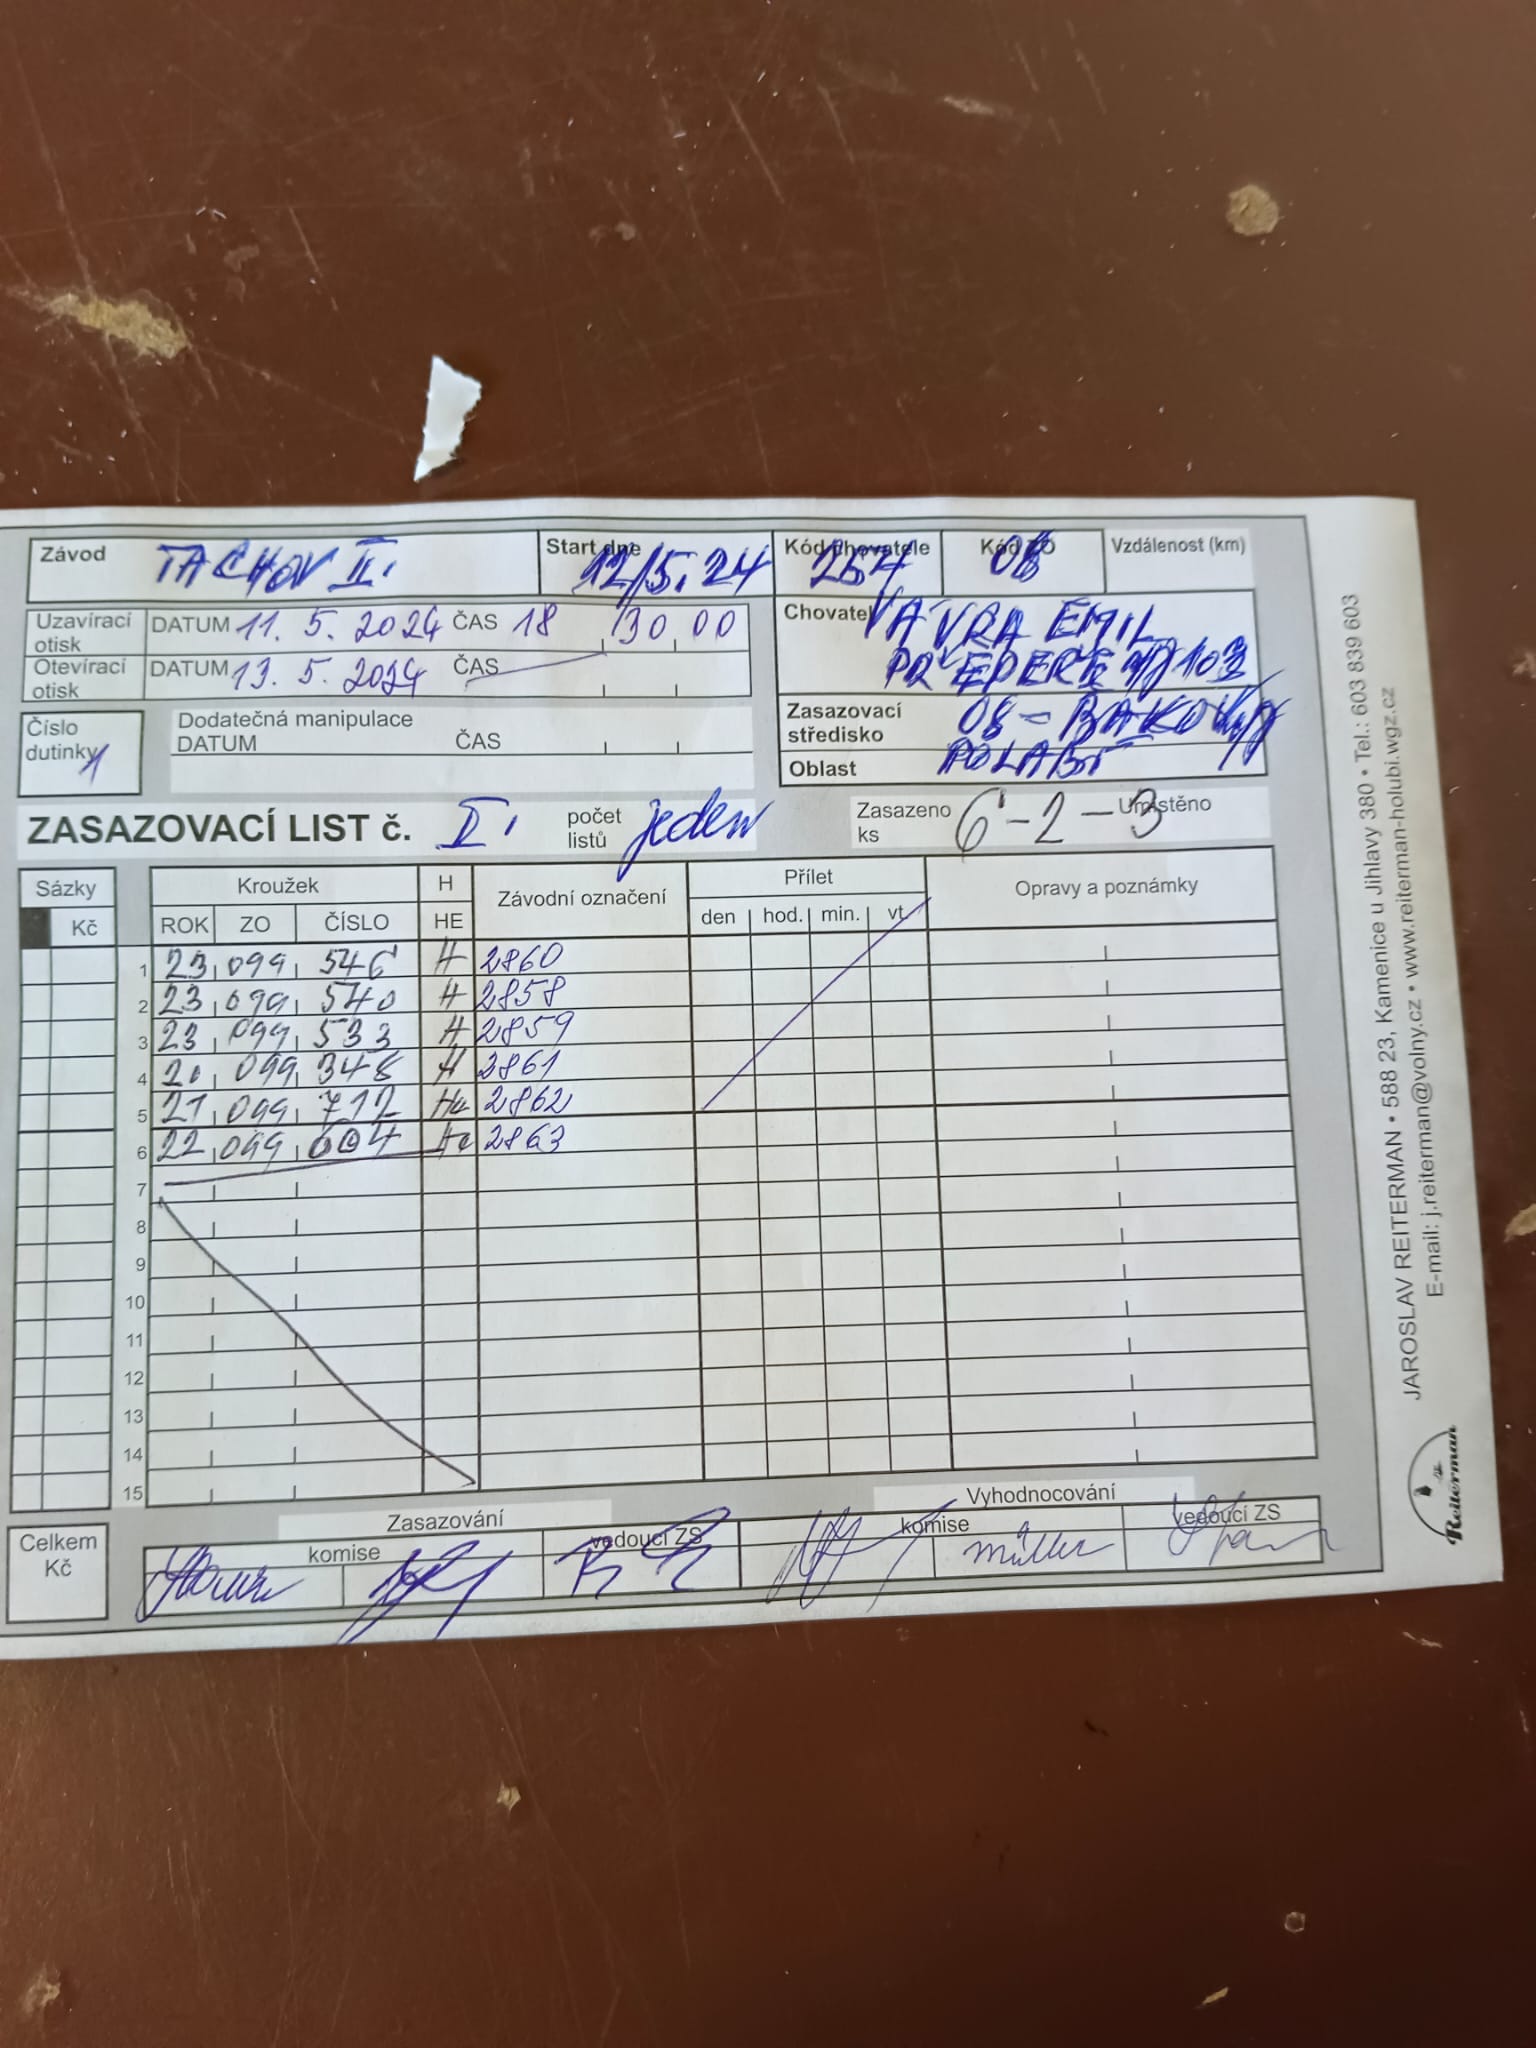 Závod TACHOV II. Start dne 12/5.24 Kód chovatele 254 Kód ZO 08 Vzdálenost (km)
Uzavírací otisk DATUM 11. 5. 2024 ČAS 18 30 00
Otevírací otisk DATUM 13. 5. 2024 ČAS
Chovatel VÁVRA EMIL
PŘEPEŘE 103
Číslo dutinky 1
Dodatečná manipulace
DATUM ČAS
Zasazovací středisko 08 - BAKOV
Oblast POLABÍ
ZASAZOVACÍ LIST č. II. počet listů jeden Zasazeno ks 6-2-3 Umístěno
Sázky Kroužek H Závodní označení Přílet Opravy a poznámky
Kč ROK ZO ČÍSLO HE den hod. min. vt.
1 23 099 546 H 2860
2 23 099 540 H 2858
3 23 099 533 H 2859
4 20 099 348 H 2861
5 21 099 712 He 2862
6 22 099 604 He 2863
7
8
9
10
11
12
13
14
15
Celkem Kč
Zasazování Vyhodnocování
komise vedoucí ZS komise vedoucí ZS
Müller
JAROSLAV REITERMAN • 588 23, Kamenice u Jihlavy 380 • Tel.: 603 839 603
E-mail: j.reiterman@volny.cz • www.reiterman-holubi.wgz.cz
Reiterman